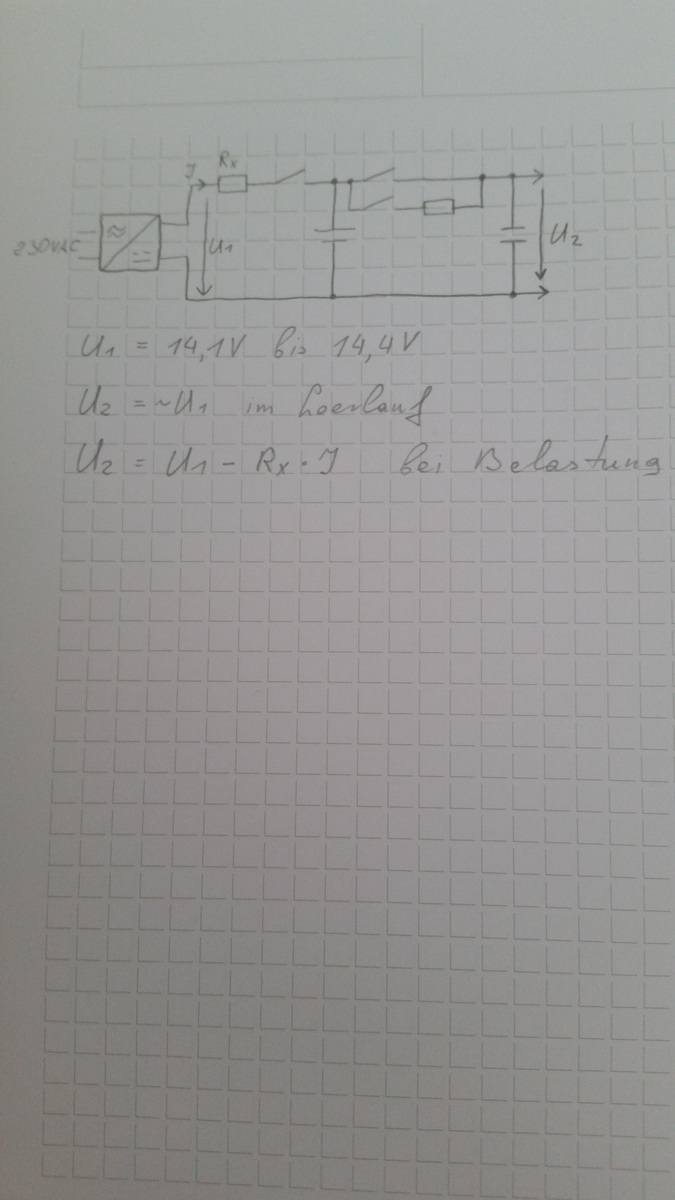 I Rx
230VAC
U1
U2
U1 = 14,1V bis 14,4V
U2 = ~U1 im Leerlauf
U2 = U1 - Rx · I bei Belastung